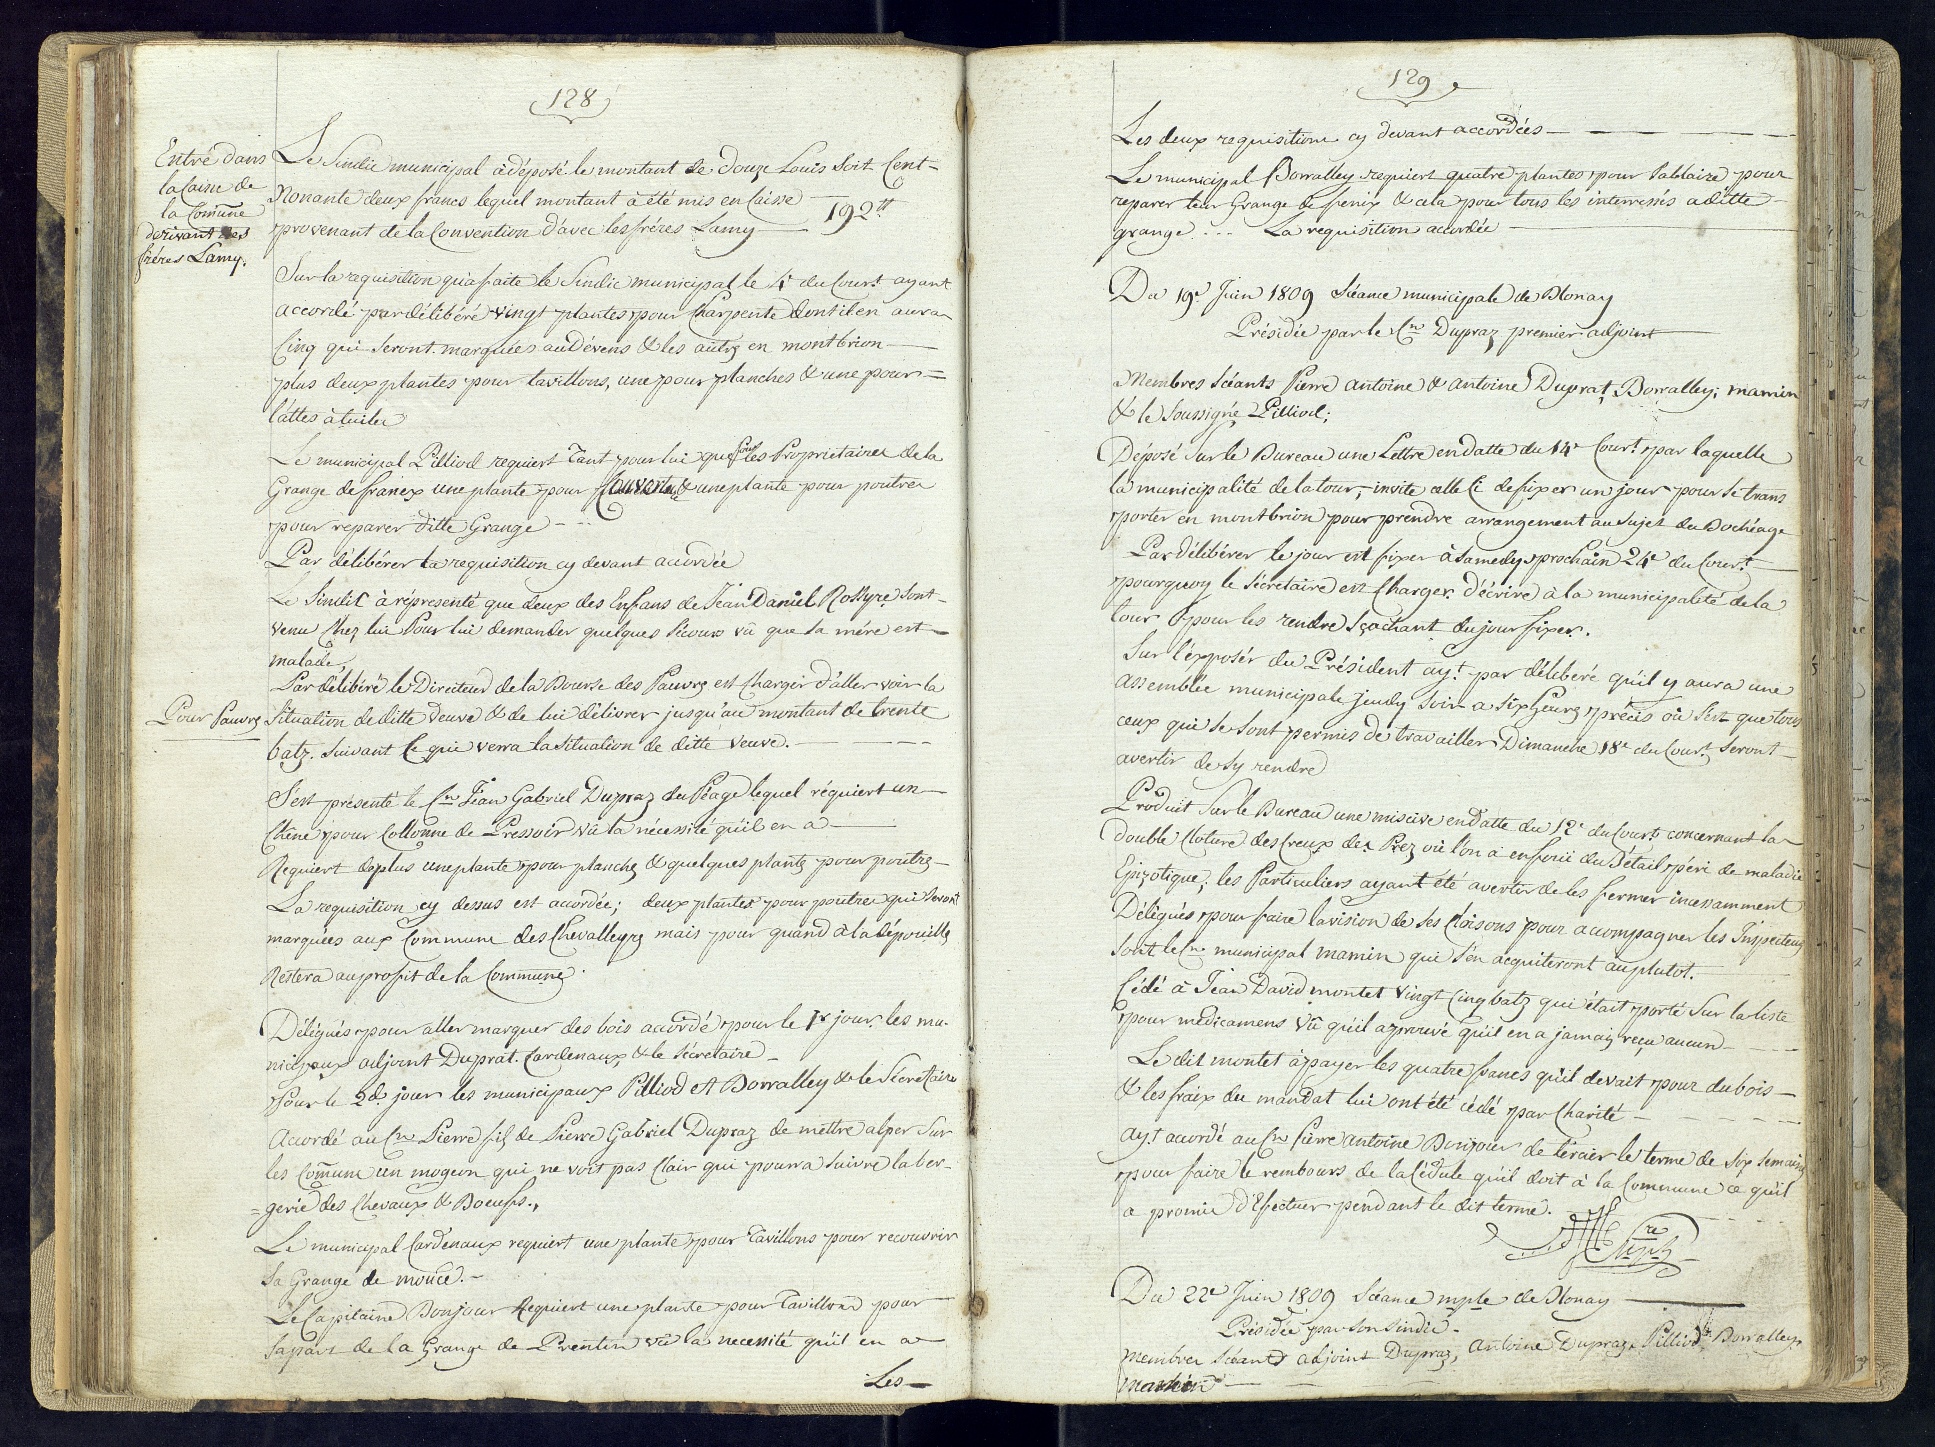 128
Entré dans
la Caisse de
la Comune
derivant des
fréres Lamy.
Le Sindic municipal à déposé le montant de douze Louis Soit Cent-
Nonante deux francs lequel montant à été mis en Caisse
provenant de la Convention d'avec les fréres Lamy — 192
Sur la requisition qu'a faite le Sindic municipal le 4e du Court ayant
accordé par délibéré vingt plantes pour Charpente dont il en aura
Cinq qui seront marquées au Dévens & les autres en montbrion —
plus deux plantes pour tavillons, une pour planches & une pour =
lattes à tuiler
Le municipal Pilliod requiert Tant pour lui que pour les Propriétaires de la
Grange de franex une plante pour Couverture & une plante pour poutres
pour reparer ditte Grange -
Par délibérer la requisition cy devant accordée
Le Sindic à répresenté que deux des Enfans de Jean Daniel Rossyre sont-
venu Chez lui Pour lui demander quelques secours vû que sa mére est-
malade,
Par délibéré le Directeur de la Bourse des Pauvres est Charger d'aller voir la
Pour Pauvres
Situation de ditte veuve & de lui délivrer jusqu'au montant de trente
batz. Suivant ce qui verra la Situation de ditte veuve. —
S'est présenté le Cn Jéan Gabriel Dupraz du Péage lequel réquiert un —
Chêne pour Collonne de Pressoir vû la nécessité qu'il en a —
Requiert deplus une plante pour planches & quelques plantes pour poutres —
La requisition cy dessus est accordée; deux plantes pour poutres qui seront
marquées aux Commune des Chevalleyres mais pour quand à la dépouille
Restera au profit de la Commune.
Délégués pour aller marquer des bois accordé pour le 1r jour, les mu-
nicipaux adjoint Duprat, Cardenaux, & le sécretaire —
Pour le 2d jour les municipaux Pilliod et Borralley & le Sécretaire
Accordé au Cn Pierre fils de Pierre Gabriel Dupraz de mettre alper Sur
les Comune un mogeon qui ne voit pas Clair qui pourra suivre la ber-
=gerie des Chevaux & Boeufs.,
Le municipal Cardenaux requiert une plante pour Tavillons pour recouvrir
sa Grange de mouce. -
Le Capitaine Bonjour Requiert une plante pour Tavillond pour
sa part de la Grange de Prentin vû la necessité qu'il en a —
Les —
129
Les deux requisitions cy devant accordées —
Le municipal Borralley requiert quatre plantes pour Sablaire pour
reparer leur Grange de fenix & cela pour tous les interressés a ditte
grange... La requisition accordée —
Du 19e Juin 1809 Séance municipale de Blonay
Présidée par le Cn Dupraz premier adjoint
Membres Séants Pierre antoine & antoine Duprat, Borralley; mamin
& le Soussigné Pilliod;
Déposé Sur le Bureau une Lettre en datte du 14e Court par laquelle
la municipalité de la tour, invite celle ci de fixer un jour pour se trans
porter en montbrion pour prendre arrangement au sujet du Bochéage
Par délibérer le jour est fixer à Samedy prochain 24e du Court
pourquoy le Sécretaire est Charger d'écrire à la municipalité de la
tour pour les rendre Sçachant du jour fixer.
Sur l'éxposér du Président ayt par délibéré qu'il y aura une
assemblée municipale Jeudy Soir a Six heures précis où s'est que tous
ceux qui se sont permis de travailler Dimanche 18e du Court seront
avertir de sy rendre
Produit Sur le Bureau une missive en datte du 12e du Court concernant la
double Cloture des Creux des Prez où l'on a enfouï du Bétail péri de maladie
Epizotique; les Particuliers ayant été avertir de les fermer incessamment
Délégués pour faire la vision de ses Cloisons pour accompagner les Inspecteurs
sont le Cn municipal mamin qui s'en acquiteront au plutot.
Cédé à Jéan David montet vingt Cinq batz qui était porté Sur la liste
pour médicamens vû qu'il a prouvé qu'il en a jamais reçu aucun —
Le dit montet à payer les quatre francs qu'il devait pour du bois —
& les fraix du mandat lui ont été cédé par Charité —
ayt accordé au Cn Pierre antoine Bonjour de le terme de Six semaines
pour faire le rembours de la Cédule qu'il doit à la Commune ce qu'il
a promis d'Efectuer pendant le dit terme.
Du 22e Juin 1809 Séance mple de Blonay —
Présidée par son Sindic.
Membres Séants adjoint Dupraz, Antoine Dupraz, Pilliod, Borralley,
Mamin